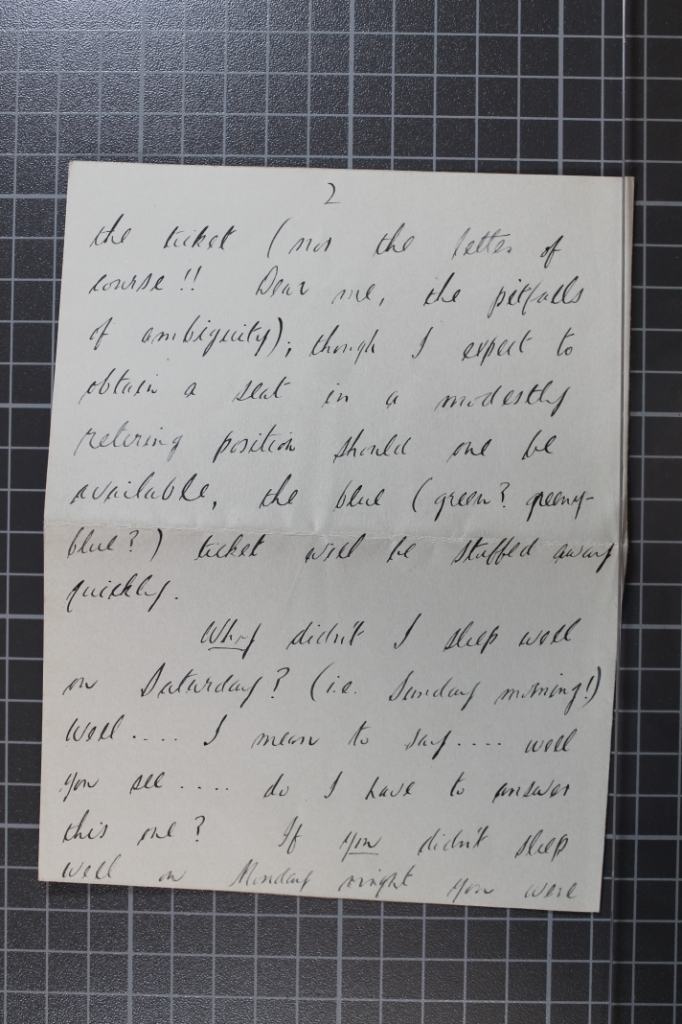 2
the ticket (not the letter of
course!! Dear me, the pitfalls
of ambiguity); though I expect to
obtain a seat in a modestly
retiring position should one be
available, the blue (green? greeny-
blue?) ticket will be stuffed away
quickly.
Why didn't I sleep well
on Saturday? (i.e. Sunday morning!)
Well .... I mean to say .... well
you see .... do I have to answer
this one? If you didn't sleep
well on Monday night you were